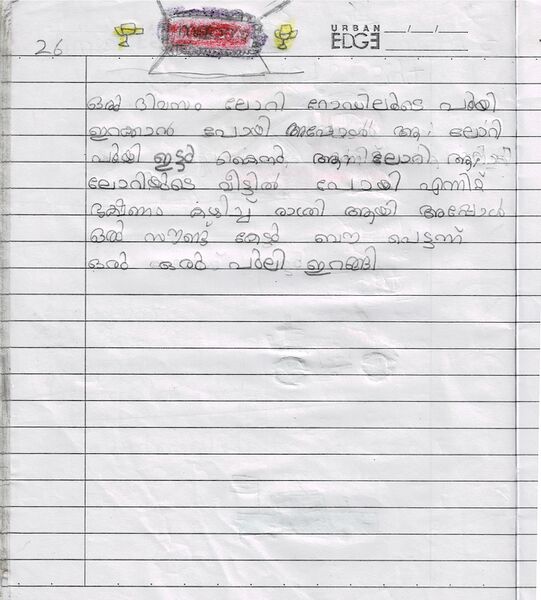 26
URBAN EDGE
ഒരു ദിവസം ലോറി റോഡിലൂടെ പുഴയി
ഇറക്കാൻ പോയി അപ്പോൾ ആ ലോറി
ഇട്ടു ആ
ലോറിയുടെ വീട്ടിൽ പോയി എന്നിട്ട്
ഭക്ഷണം കഴിച്ച് രാത്രി ആയി അപ്പോൾ
ഒരു സൗണ്ട് കേട്ടു പെട്ടന്ന്
ഒരു പുലി ഇറങ്ങി